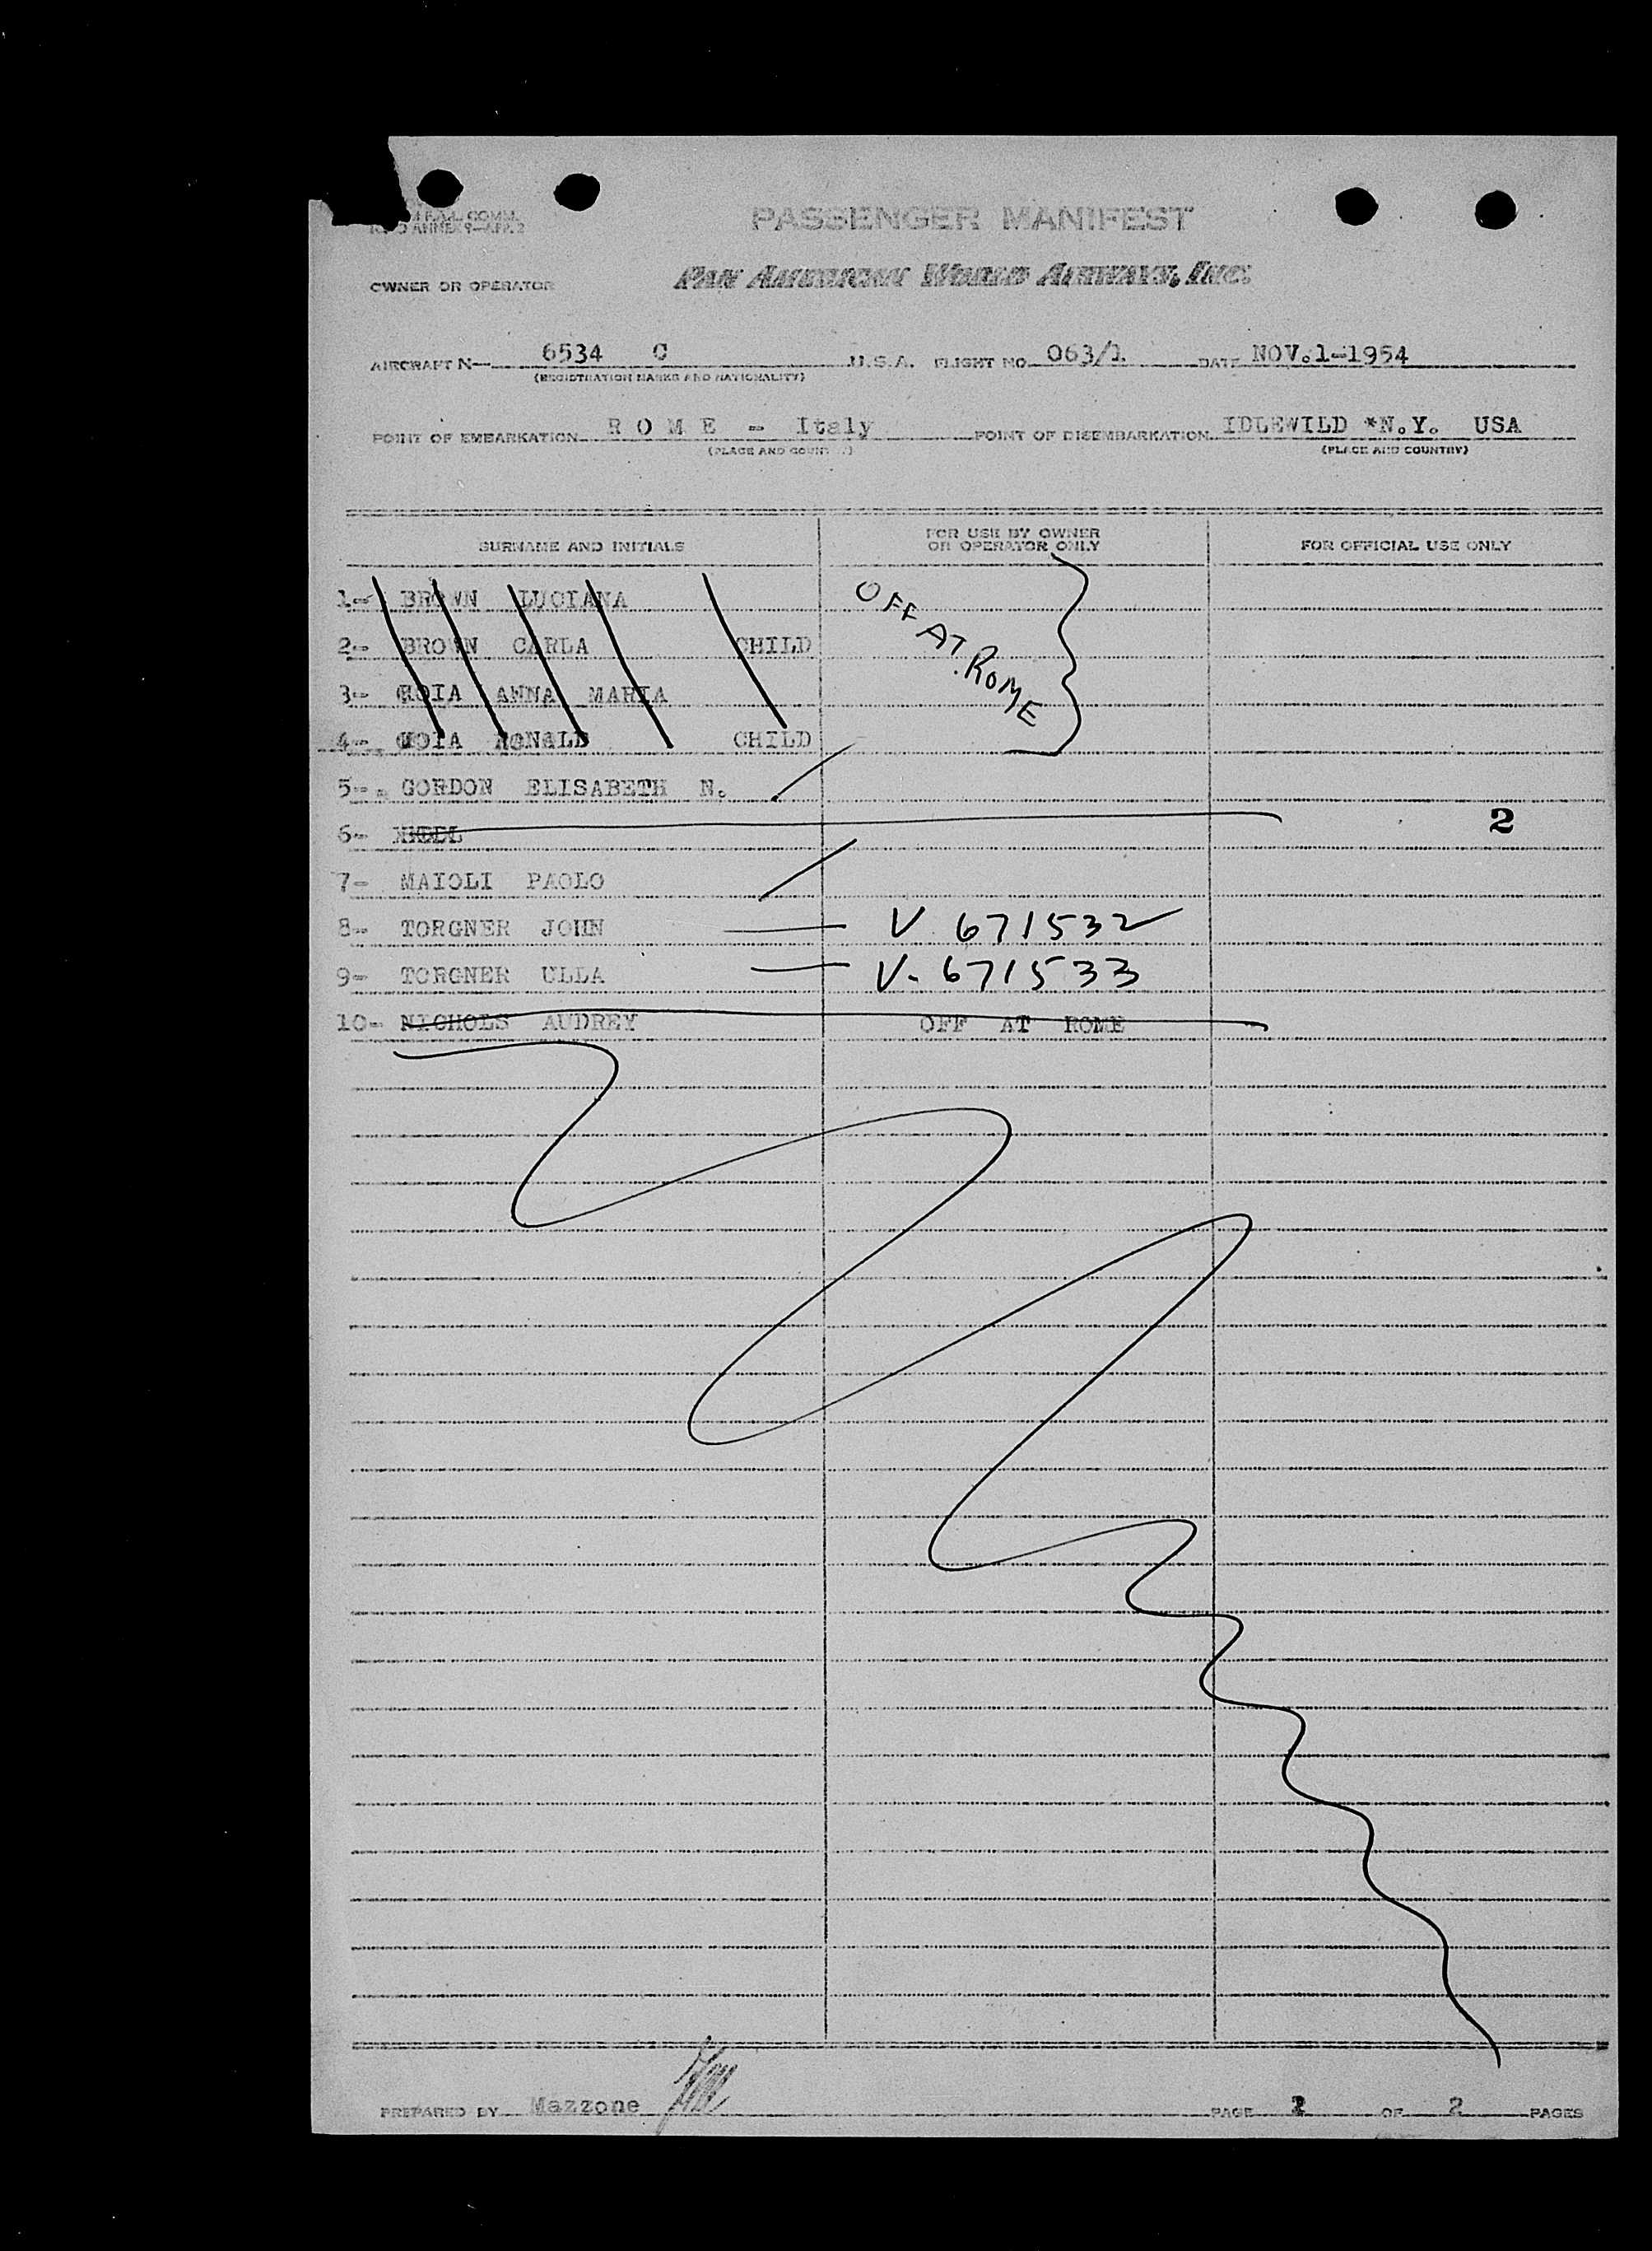 PASSENGER MANIFEST
OWNER OR OPERATOR PAN AMERICAN WORLD AIRWAYS, INC.
AIRCRAFT N— 6534 C U.S.A. FLIGHT NO. 063/1 DATE NOV.1-1954
(REGISTRATION MARKS AND NATIONALITY)
POINT OF EMBARKATION R O M E - Italy POINT OF DISEMBARKATION IDLEWILD *N.Y. USA
(PLACE AND COUNTRY) (PLACE AND COUNTRY)
SURNAME AND INITIALS FOR USE BY OWNER OR OPERATOR ONLY FOR OFFICIAL USE ONLY
1- BROWN LUCIANA
2- BROWN CARLA CHILD
3- ANNA MARIA
4- RONALD CHILD
OFF AT ROME
5- GORDON ELISABETH N.
6- 2
7- MAIOLI PAOLO
8- TORGNER JOHN V 671532
9- TORGNER ULLA V-671533
10- NICHOLS AUDREY OFF AT ROME
PREPARED BY Mazzone PAGE OF 2 PAGES